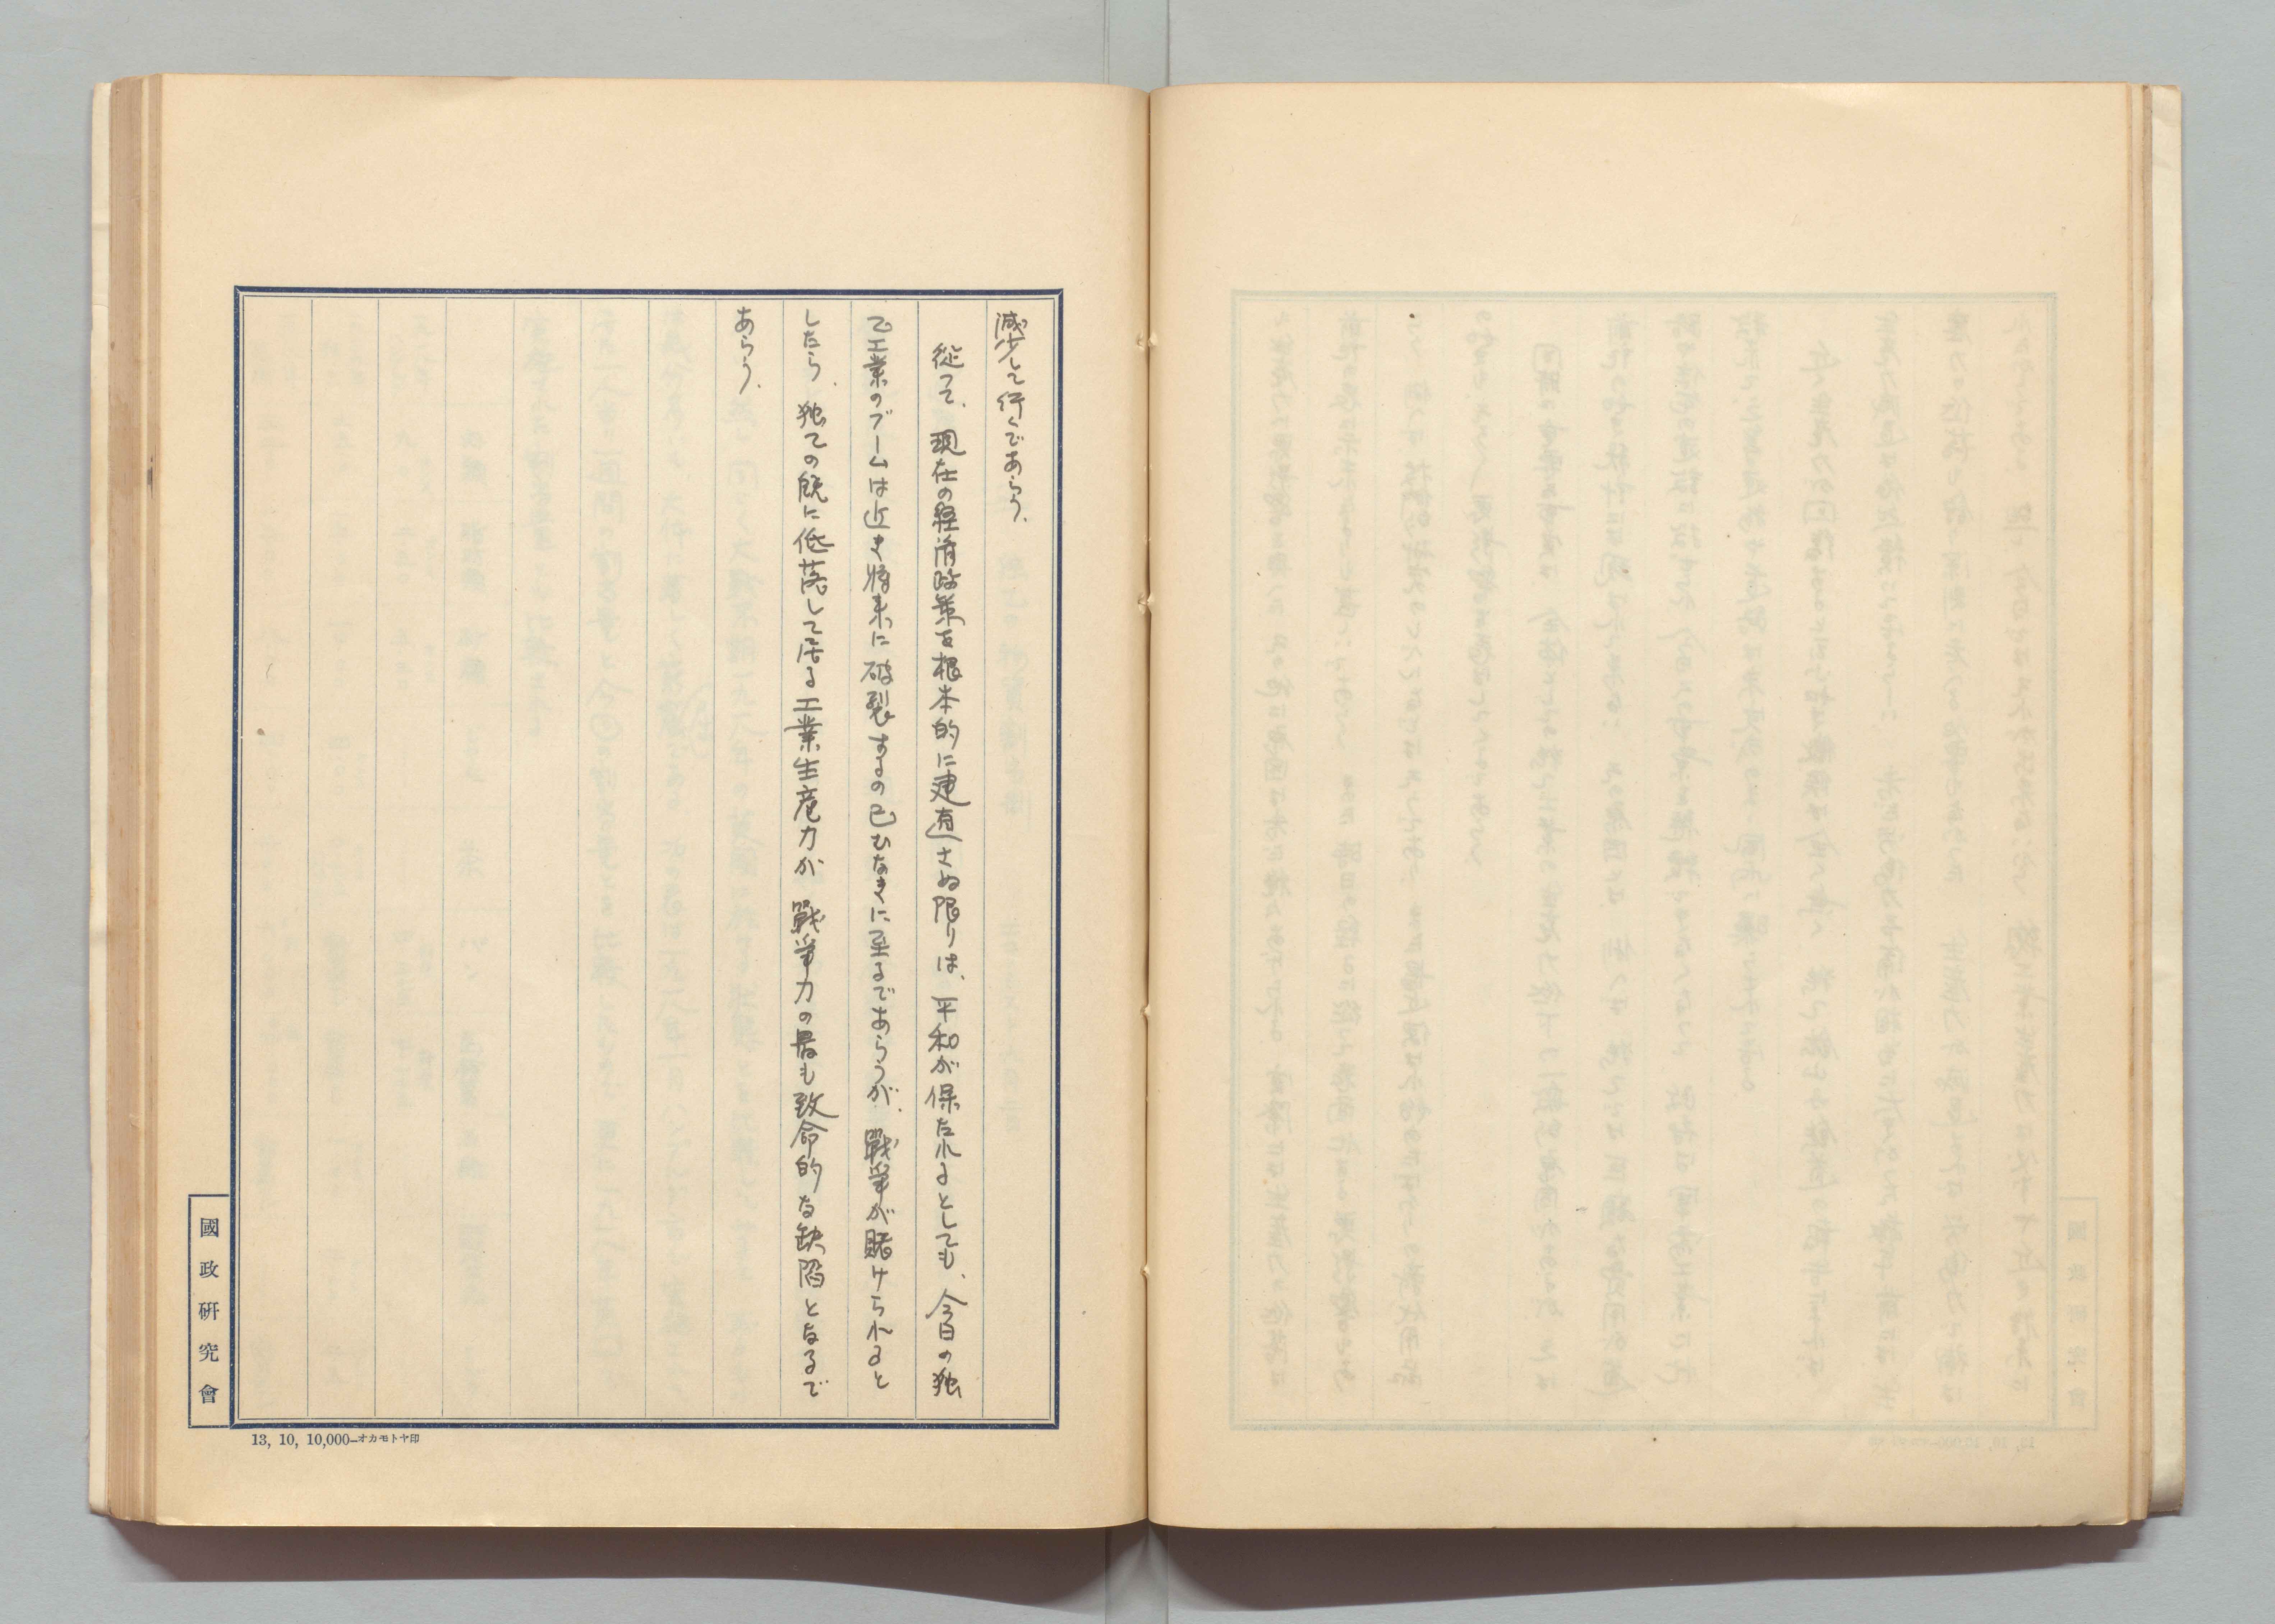 減少して行くであらう、
従つて、現在の経済政策を根本的に建直さぬ限りは、平和が保たれるとしても、今日の独
乙工業のブームは近き将来に破裂するの已むなきに至るであらうが、戦争が賭けられると
したら、独乙の既に低落して居る工業生産力が戰争力の最も致命的な缺陷となるで
あらう、
國政研究會
13, 10, 10,000—オカモトヤ印